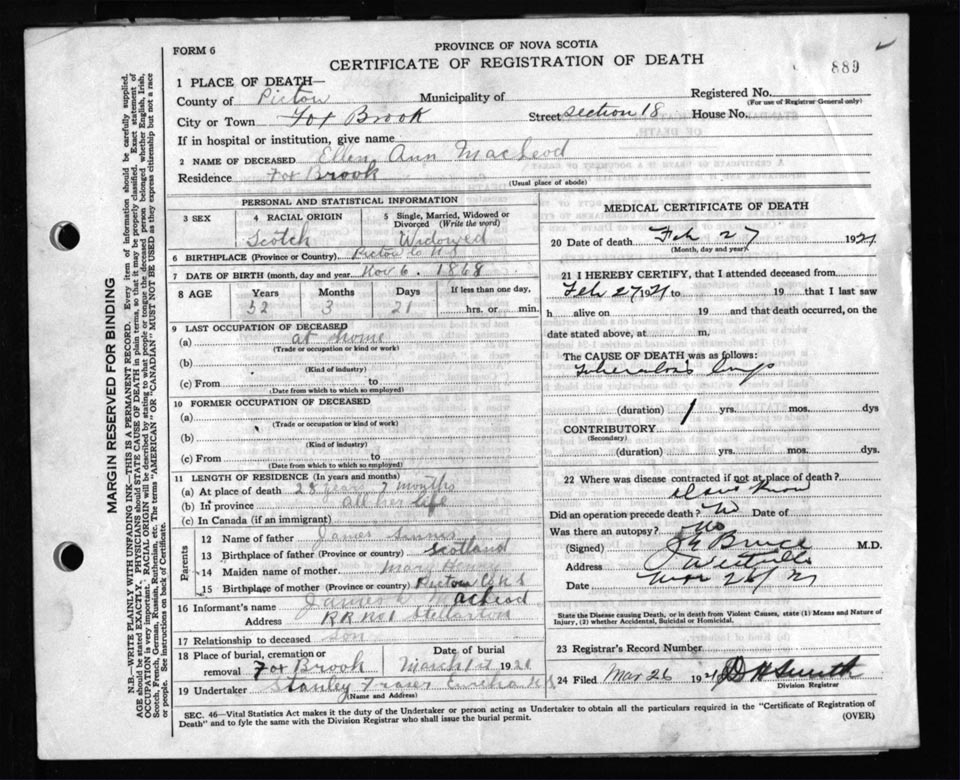 FORM 6
PROVINCE OF NOVA SCOTIA
CERTIFICATE OF REGISTRATION OF DEATH
889
1 PLACE OF DEATH—
County of Pictou Municipality of Registered No.
(For use of Registrar General only)
City or Town Fox Brook Street section 18 House No.
If in hospital or institution, give name
2 NAME OF DECEASED Ellen Ann MacLeod
Residence Fox Brook
(Usual place of abode)
PERSONAL AND STATISTICAL INFORMATION
3 SEX 4 RACIAL ORIGIN 5 Single, Married, Widowed or Divorced (Write the word)
Scotch Widowed
6 BIRTHPLACE (Province or Country) Pictou Co N.S
7 DATE OF BIRTH (month, day and year) Nov 6. 1868
8 AGE Years Months Days If less than one day,
52 3 21 hrs. or min.
9 LAST OCCUPATION OF DECEASED
(a) at home
(Trade or occupation or kind or work)
(b)
(Kind of industry)
(c) From to
(Date from which to which so employed)
10 FORMER OCCUPATION OF DECEASED
(a)
(Trade or occupation or kind of work)
(b)
(Kind of industry)
(c) From to
(Date from which to which so employed)
11 LENGTH OF RESIDENCE (In years and months)
(a) At place of death 28 years 7 months
(b) In province all her life
(c) In Canada (if an immigrant)
Parents
12 Name of father James
13 Birthplace of father (Province or country) Scotland
14 Maiden name of mother Mary Henry
15 Birthplace of mother (Province or country) Pictou Co N S
16 Informant's name James MacLeod
Address RR No 1 Stellarton
17 Relationship to deceased Son
18 Place of burial, cremation or removal Fox Brook Date of burial March 1st 1921
19 Undertaker Stanley Fraser Eureka N S
(Name and Address)
MEDICAL CERTIFICATE OF DEATH
20 Date of death Feb 27 1921
(Month, day and year)
21 I HEREBY CERTIFY, that I attended deceased from
Feb 27 1921 to 19 that I last saw
h alive on 19 and that death occurred, on the
date stated above, at m.
The CAUSE OF DEATH was as follows:
Tuberculosis lungs
(duration) 1 yrs. mos. dys
CONTRIBUTORY
(Secondary)
(duration) yrs. mos. dys.
22 Where was disease contracted if not at place of death?
dont know
Did an operation precede death? No Date of
Was there an autopsy? No
(Signed) J E Bruce M.D.
Address Westville
Date Mar 26/21
State the Disease causing Death, or in death from Violent Causes, state (1) Means and Nature of
Injury, (2) whether Accidental, Suicidal or Homicidal.
23 Registrar's Record Number
24 Filed Mar 26 1921 D H Smith
Division Registrar
SEC. 46—Vital Statistics Act makes it the duty of the Undertaker or person acting as Undertaker to obtain all the particulars required in the "Certificate of Registration of
Death" and to fyle the same with the Division Registrar who shall issue the burial permit.
(OVER)
MARGIN RESERVED FOR BINDING
N.B.—WRITE PLAINLY WITH UNFADING INK—THIS IS A PERMANENT RECORD. Every item of information should be carefully supplied.
AGE should be stated EXACTLY. PHYSICIANS should STATE CAUSE OF DEATH in plain terms, so that it may be properly classified. Exact statement of
OCCUPATION is very important. RACIAL ORIGIN will be described by stating to what people or tongue the deceased person belonged whether English, Irish,
Scotch, French, German, Russian, Ruthenian, etc. The terms "AMERICAN" or "CANADIAN" MUST NOT BE USED as they express citizenship but not a race
or people. See instructions on back of Certificate.